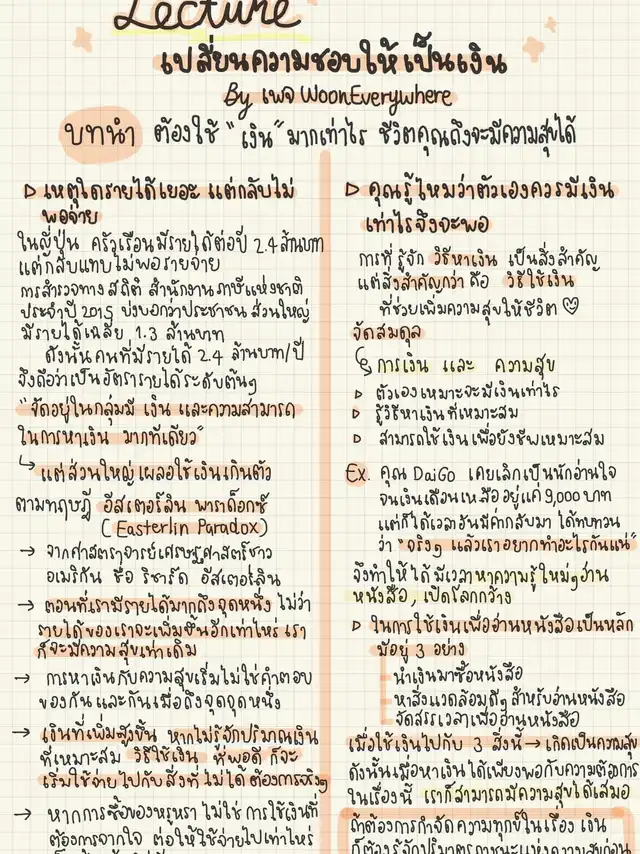 Lecture
เปลี่ยนความชอบให้เป็นเงิน
By เพจ WoonEverywhere
บทนำ ต้องใช้ "เงิน" มากเท่าไร ชีวิตคุณถึงจะมีความสุขได้
เหตุใดรายได้เยอะ แต่กลับไม่
พอจ่าย
ในญี่ปุ่น ครัวเรือนมีรายได้ต่อปี 2.4 ล้านบาท
แต่กลับแทบไม่พอรายจ่าย
การสำรวจทางสถิติ สำนักงานภาษีแห่งชาติ
ประจำปี 2015 บ่งบอกว่าประชาชนส่วนใหญ่
มีรายได้เฉลี่ย 1.3 ล้านบาท
ดังนั้นคนที่มีรายได้ 2.4 ล้านบาท/ปี
จึงถือว่าเป็นอัตรารายได้ระดับต้นๆ
"จัดอยู่ในกลุ่มมี เงิน และความสามารถ
ในการหาเงิน มากทีเดียว"
แต่ส่วนใหญ่เผลอใช้เงินเกินตัว
ตามทฤษฎี อีสเตอร์ลิน พาราด็อกซ์
(Easterlin Paradox)
→ จากศาสตราจารย์เศรษฐศาสตร์ชาว
อเมริกัน ชื่อ ริชาร์ด อีสเตอร์ลิน
→ ตอนที่เรามีรายได้มากถึงจุดหนึ่ง ไม่ว่า
รายได้ของเราจะเพิ่มขึ้นอีกเท่าไหร่ เรา
ก็จะมีความสุขเท่าเดิม
→ การหาเงินกับความสุขเริ่มไม่ใช่คำตอบ
ของกันและกันเมื่อถึงจุดจุดหนึ่ง
→ เงินที่เพิ่มสูงขึ้น หากไม่รู้จักปริมาณเงิน
ที่เหมาะสม วิธีใช้เงิน ที่พอดี ก็จะ
เริ่มใช้จ่ายไปกับสิ่งที่ไม่ได้ต้องการจริงๆ
→ หากการซื้อของหรูหรา ไม่ใช่ การใช้เงินที่
ต้องการจากใจ ต่อให้ใช้จ่ายไปเท่าไหร่
คุณรู้ไหมว่าตัวเองควรมีเงิน
เท่าไรจึงจะพอ
การที่รู้จัก วิธีหาเงิน เป็นสิ่งสำคัญ
แต่สิ่งสำคัญกว่า คือ วิธีใช้เงิน
ที่ช่วยเพิ่มความสุขให้ชีวิต ♡
จัดสมดุล
การเงิน และ ความสุข
ตัวเองเหมาะจะมีเงินเท่าไร
รู้วิธีหาเงินที่เหมาะสม
สามารถใช้เงินเพื่อยังชีพเหมาะสม
Ex. คุณ DaiGo เคยเลิกเป็นนักอ่านใจ
จนเงินเดือนเหลืออยู่แค่ 9,000 บาท
แต่ก็ได้เวลาอันมีค่ากลับมา ได้ทบทวน
ว่า "จริงๆ แล้วเราอยากทำอะไรกันแน่"
จึงทำให้ได้มีเวลาหาความรู้ใหม่ๆอ่าน
หนังสือ, เปิดโลกกว้าง
ในการใช้เงินเพื่ออ่านหนังสือเป็นหลัก
มีอยู่ 3 อย่าง
นำเงินมาซื้อหนังสือ
หาสิ่งแวดล้อมดีๆ สำหรับอ่านหนังสือ
จัดสรรเวลาเพื่ออ่านหนังสือ
เมื่อใช้เงินไปกับ 3 สิ่งนี้ → เกิดเป็นความสุข
ดังนั้นเมื่อหาเงินได้เพียงพอกับความต้องการ
ในเรื่องนี้ เราก็สามารถมีความสุขได้เสมอ
ถ้าต้องการกำจัดความทุกข์ในเรื่อง เงิน